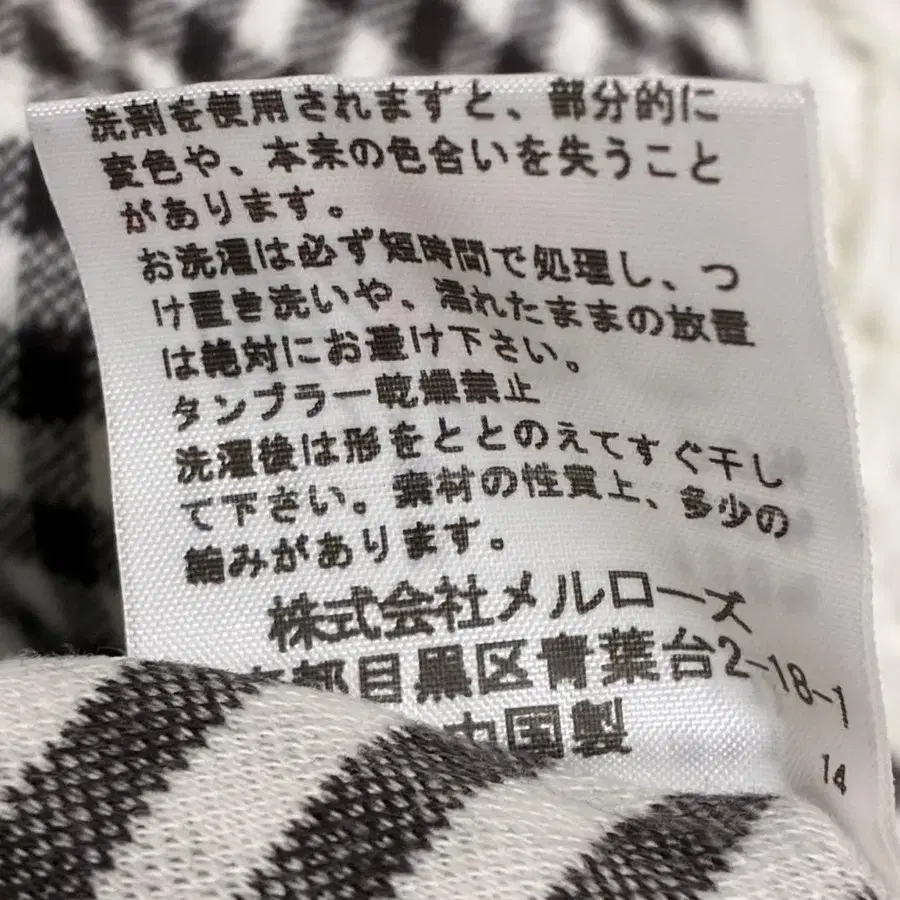 洗剤を使用されますと、部分的に
変色や、本来の色合いを失うこと
があります。
お洗濯は必ず短時間で処理し、つ
け置き洗いや、濡れたままの放置
は絶対にお避け下さい。
タンブラー乾燥禁止
洗濯後は形をととのえてすぐ干し
て下さい。素材の性質上、多少の
縮みがあります。
株式会社メルローズ
京都目黒区青葉台2-18-1
中国製
14